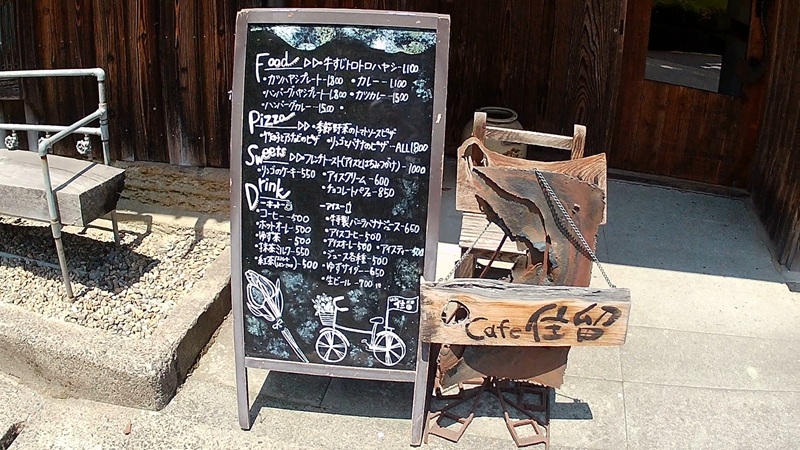 Food ▷▷・牛すじトロトロハヤシ-1,100
・カツハヤシプレート-1,800 ・カレー-1,100
・ハンバーグハヤシプレート-1,800 ・カツカレー-1,500
・ハンバーグカレー-1,500
Pizza ▷▷・季節野菜のトマトソースピザ
・リンゴとバナナのピザ -ALL1800
Sweets ▷▷・フレンチトースト(アイスとはちみつがけ)-1000
・リンゴのケーキ-550 ・アイスクリーム-600
・チョコレートパフェ-850
Drink
-ホット-
・コーヒー-500
・ホットオーレ-500
・ゆず茶 -500
・抹茶ミルク-550
・紅茶 -500
-アイス-
・特製バニラバナナジュース-650
・アイスコーヒー-500
・アイスオーレ-500 ・アイスティー-500
・ジュース各種-500
・ゆずサイダー-650
・生ビール-700
住留
Cafe 住留